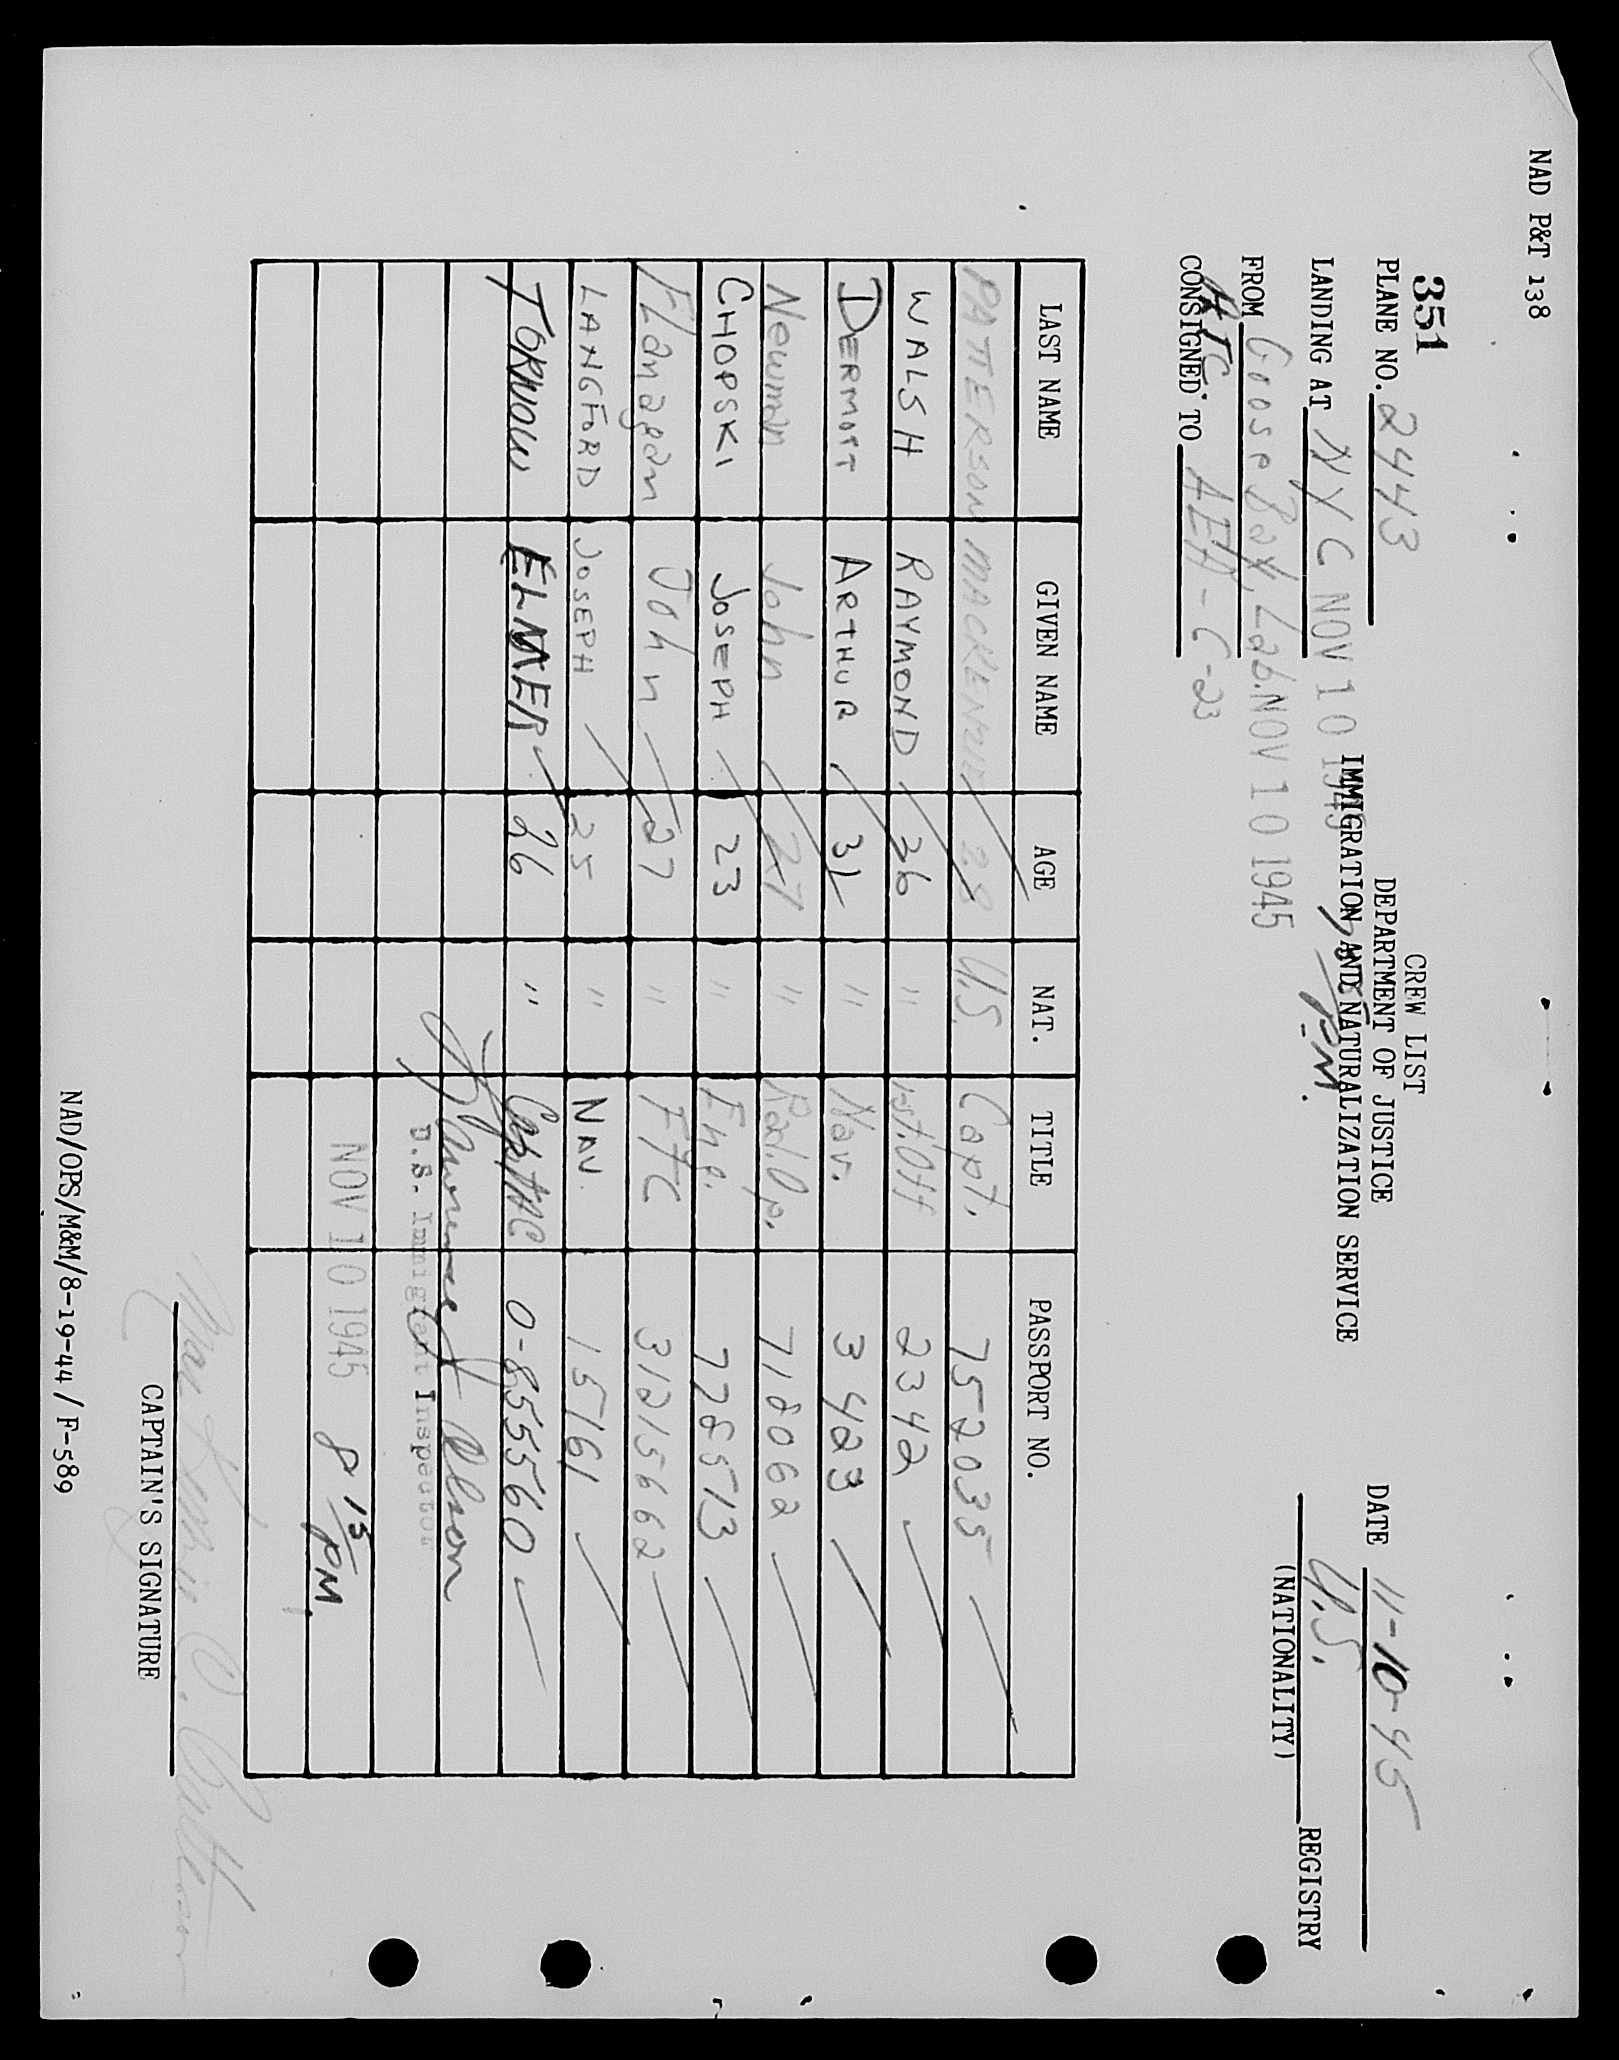 NAD P&T 138
351
CREW LIST
DEPARTMENT OF JUSTICE
IMMIGRATION AND NATURALIZATION SERVICE
PLANE NO. 2443
DATE 11-10-45
LANDING AT NYC NOV 10 1945 PM.
U.S. REGISTRY
(NATIONALITY)
FROM Goose Bay, Lab. NOV 10 1945
ATC.
CONSIGNED TO AEA-C-23
LAST NAME GIVEN NAME AGE NAT. TITLE PASSPORT NO.
PATTERSON MACKENZIE 28 U.S. Capt. 752035
WALSH RAYMOND 26 " 1st. Off 2342
DERMOTT ARTHUR 31 " Nav. 3423
Newman John 27 " Rad. Op. 718062
CHOPSKI JOSEPH 23 " Eng. 778513
Flanagan John 27 " FTC 31215662
LANGFORD JOSEPH 25 " NAV. 15161
TORNOW ELMER 26 " Capt AC 0-855560
Olson
U.S. Immigrant Inspector
NOV 10 1945 8 15 PM.
MacKenzie C. Patterson
CAPTAIN'S SIGNATURE
NAD/OPS/M&M/8-19-44/F-589